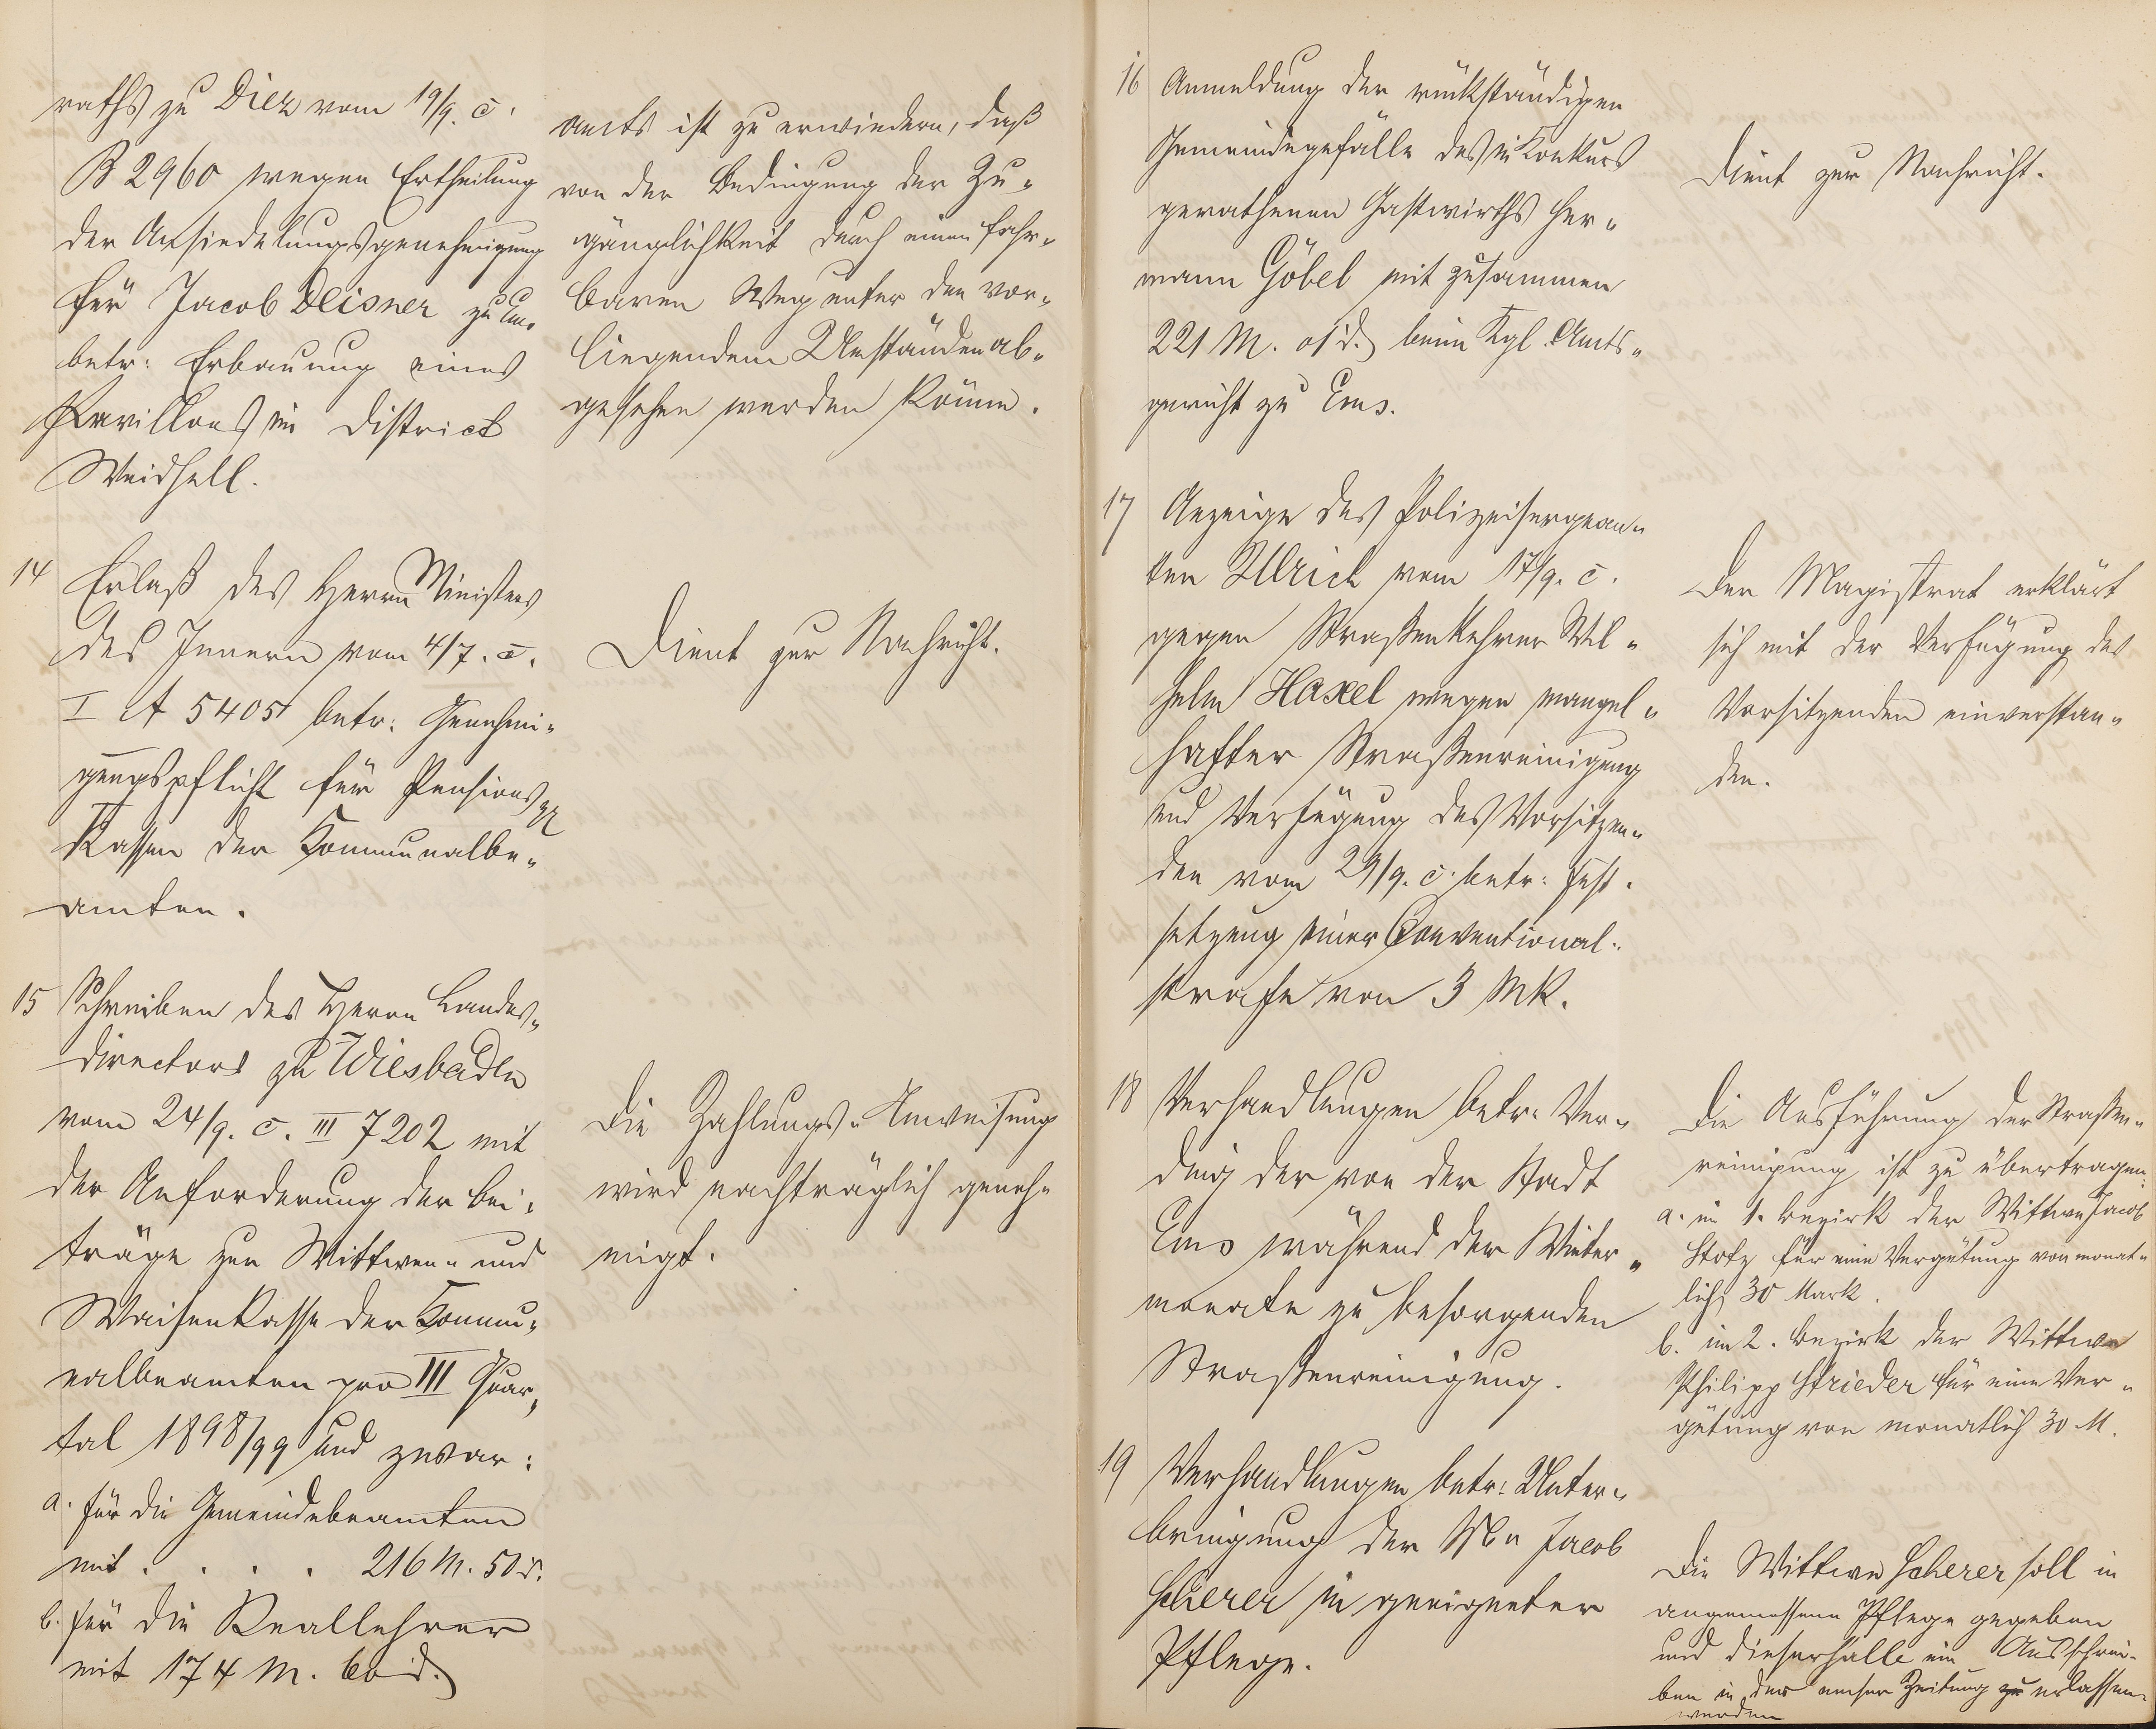 raths zu Diez vom 19/9. c.
B 2960 wegen Ertheilung
der Ansiedelungsgenehmigung
für Jacob Deisner zu Ems
betr: Erbauung eines
Pavillons im District
Weidhell.
amts ist zu erwiedern, daß
von der Bedingung der Zu-
gänglichkeit durch einen fahr-
baren Weg unter den vor-
liegenden Umständen ab-
gesehen werden könne.
14 Erlaß des Herrn Ministers
des Innern vom 4/7. c.
I A 5405 betr: Genehmi-
gungspflicht für Pensions
Kassen der Kommunalbe-
amten.
Dient zur Nachricht.
15 Schreiben des Herrn Landes-
directors zu Wiesbaden
vom 24/9. c. III 7202 mit
der Anforderung der Bei-
träge zur Wittwen- und
Waisenkasse der Kommu-
nalbeamten pro III Quar-
tal 1898/99 und zwar:
a. für die Gemeindebeamten
mit . . . . 216 M. 50 d.
b. für die Reallehrer
mit 174 M. 60 d.
Die Zahlungs-Anweisung
wird nachträglich geneh-
migt.
16 Anmeldung der rückständigen
Gemeindegefälle des in Konkurs
gerathenen Gastwirths Her-
mann Göbel mit zusammen
221 M. 01 d. beim Kgl. Amts-
gericht zu Ems.
Dient zur Nachricht.
17 Anzeige des Polizeisergean-
ten Ulrich vom 17/9. c.
gegen Straßenkehrer Wil-
helm Haxel wegen mangel-
hafter Straßenreinigung
und Verfügung des Vorsitzen-
den vom 29/9. c. betr: Fest-
setzung einer Conventional-
strafe von 3 Mk.
Der Magistrat erklärt
sich mit der Verfügung des
Vorsitzenden einverstan-
den.
18 Verhandlungen betr. Ver-
ding der von der Stadt
Ems während der Winter-
monate zu besorgenden
Straßenreinigung.
Die Ausführung der Straßen-
reinigung ist zu übertragen:
a. im 1. Bezirk der Wittwe Jacob
Stotz für eine Vergütung von monat-
lich 30 Mark.
b. im 2. Bezirk der Wittwe
Philipp Strieder für eine Ver-
gütung von monatlich 30 M.
19 Verhandlungen betr: Unter-
bringung der Wwe Jacob
Scherer in geeigneter
Pflege.
Die Wittwe Scherer soll in
angemessene Pflege gegeben
und dieserhalb ein Ausschrei-
ben in der Emser Zeitung zu erlassen
werden